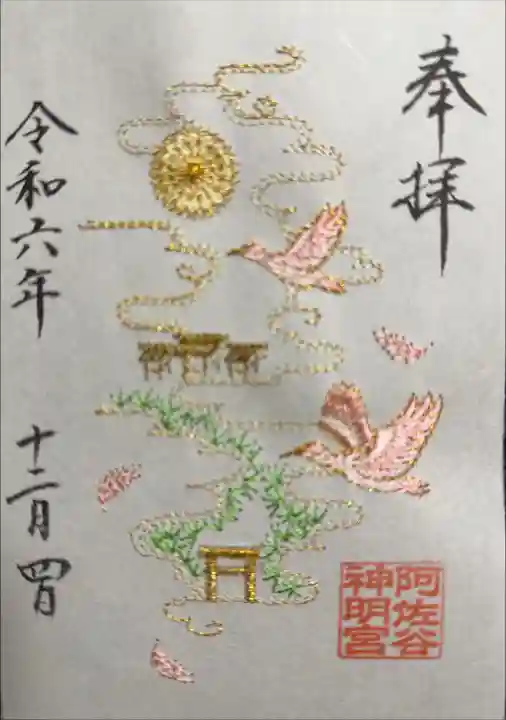 奉拝
令和六年 十二月 四日
阿佐谷
神明宮